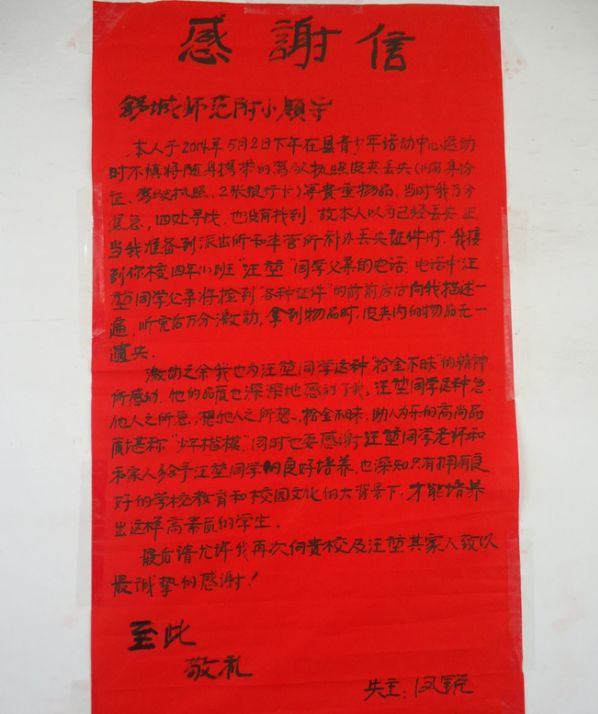 感謝信
舒城师范附小领导
本人于2014年5月2日下午在县青少年活动中心运动
时不慎将随身携带的驾驶执照皮夹丢失(内有身份
证、驾驶执照、2张银行卡)等贵重物品,当时我万分
紧急,四处寻找,也没有找到,故本人以为已经丢失,正
当我准备到派出所和车管所补办丢失证件时,我接
到你校四年八班“汪堃”同学父亲的电话,电话中汪
堃同学父亲将捡到“各种证件”的前前后后向我描述一
遍,听完后万分激动,拿到物品时,皮夹内的物品无一
遗失。
激动之余我也为汪堃同学这种“拾金不昧”的精神
所感动,他的品质也深深地感动了我。汪堃同学是种急
他人之所急,想他人之所想、拾金不昧,助人为乐的高尚品
质堪称“少年楷模”,同时也要感谢汪堃同学老师和
和家人给予汪堃同学的良好培养,也深知只有拥有良
好的学校教育和校园文化的大背景下,才能培养
出这样高素质的学生。
最后请允许我再次向贵校及汪堃其家人致以
最诚挚的感谢!
至此
敬礼
失主: